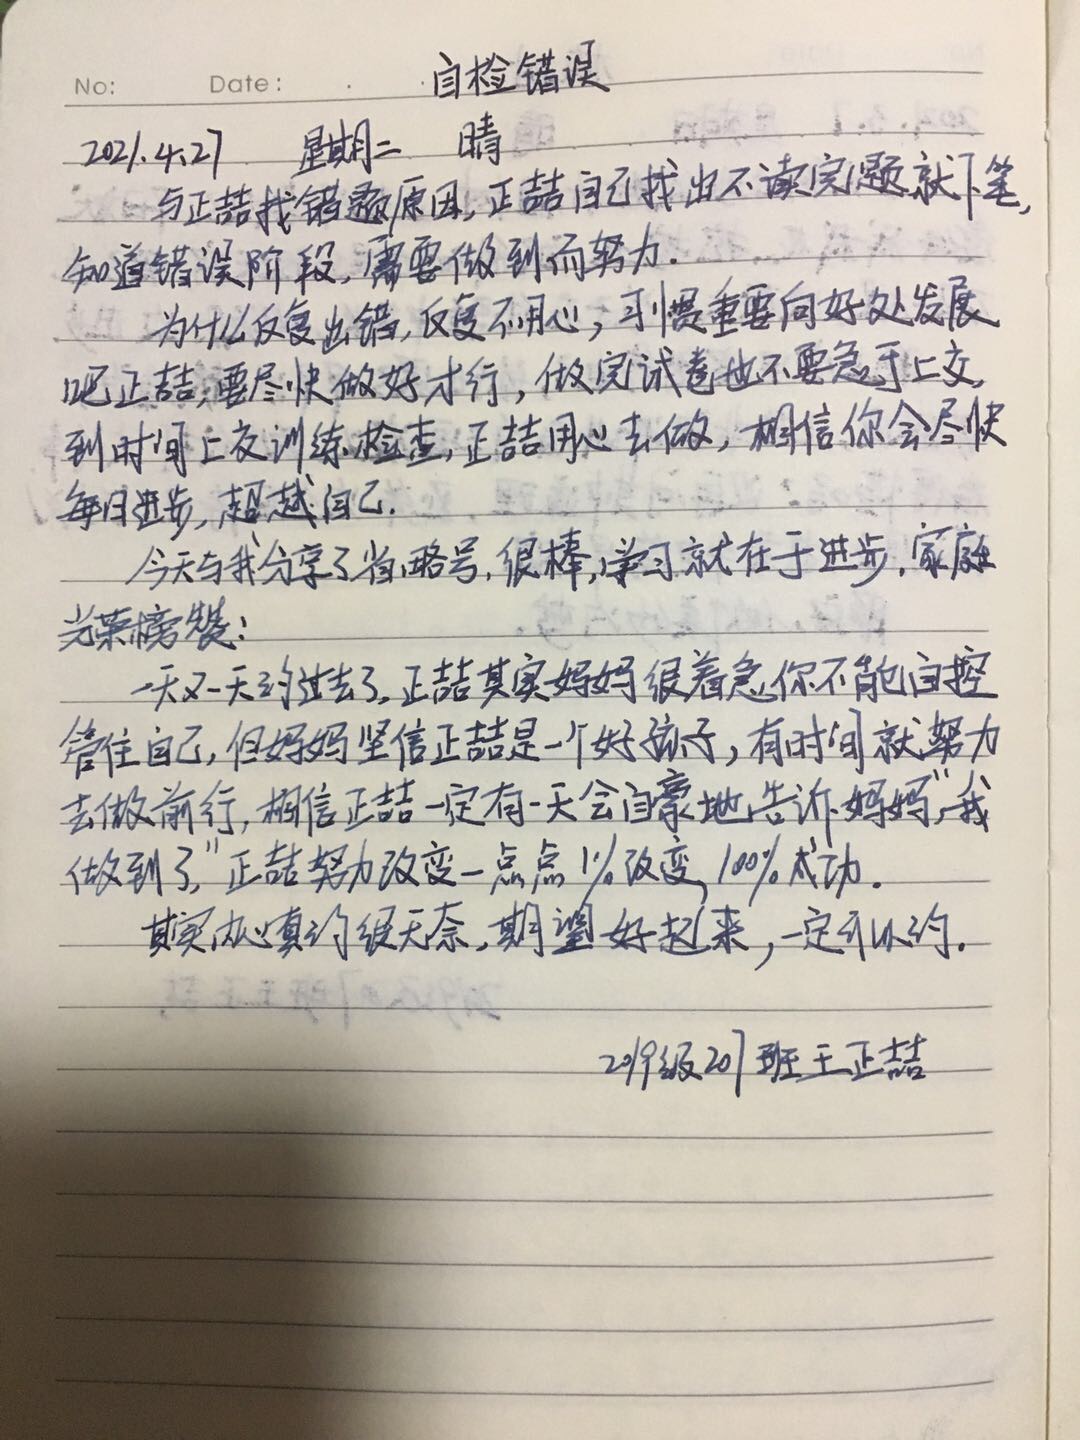 自检错误
No: Date:
2021.4.27 星期二 晴
与正喆找错题原因,正喆自己找出不读完题就下笔,
知道错误阶段,需要做到而努力.
为什么反复出错,反复不用心,习惯重要向好处发展
吧正喆,要尽快做好才行,做完试卷也不要急于上交,
到时间上交训练检查,正喆用心去做,相信你会尽快
每日进步,超越自己.
今天与我分享了省略号,很棒,学习就在于进步,家庭
光荣榜赞:
一天又一天的过去了,正喆其实妈妈很着急你不能自控
管住自己,但妈妈坚信正喆是一个好孩子,有时间就努力
去做前行,相信正喆一定有一天会自豪地告诉妈妈,"我
做到了"正喆努力改变一点点1%改变,100%成功.
其实内心真的很无奈,期望好起来,一定可以的.
2019级207班王正喆